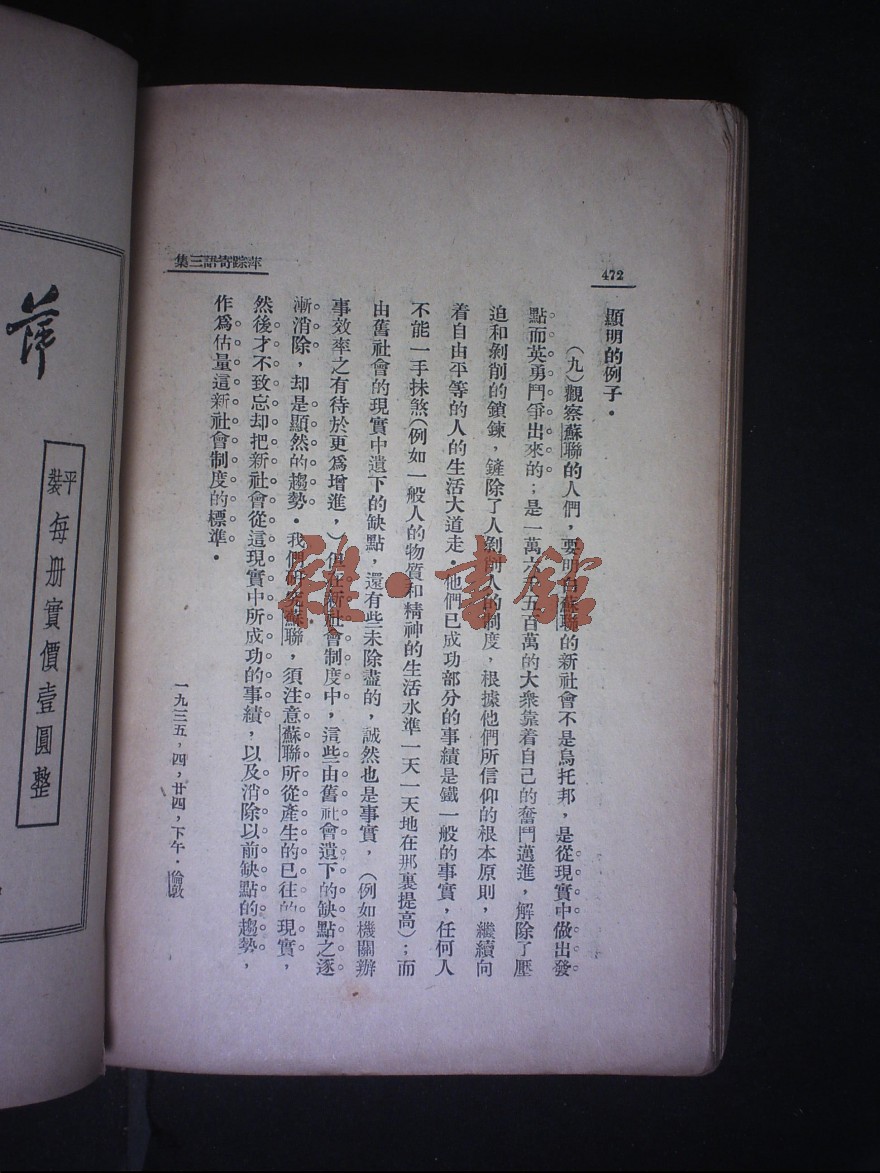 472
萍踪寄語三集
顯明的例子．
（九）觀察蘇聯的人們，要明白蘇聯的新社會不是烏托邦，是從現實中做出發
點而英勇鬥爭出來的；是一萬六千五百萬的大衆靠着自己的奮鬥邁進，解除了壓
迫和剝削的鎖鍊，鏟除了人剝削人的制度，根據他們所信仰的根本原則，繼續向
着自由平等的人的生活大道走．他們已成功部分的事績是鐵一般的事實，任何人
不能一手抹煞（例如一般人的物質和精神的生活水準一天一天地在那裏提高）；而
由舊社會的現實中遺下的缺點，還有些未除盡的，誠然也是事實，（例如機關辦
事效率之有待於更爲增進，）但在新社會制度中，這些由舊社會遺下的缺點之逐
漸消除，却是顯然的趨勢．我們研究蘇聯，須注意蘇聯所從產生的已往的現實，
然後才不致忘却把新社會從這現實中所成功的事績，以及消除以前缺點的趨勢，
作爲估量這新社會制度的標準．
一九三五，四，廿四，下午．倫敦
萍
平裝
每册實價壹圓整
雅·書館